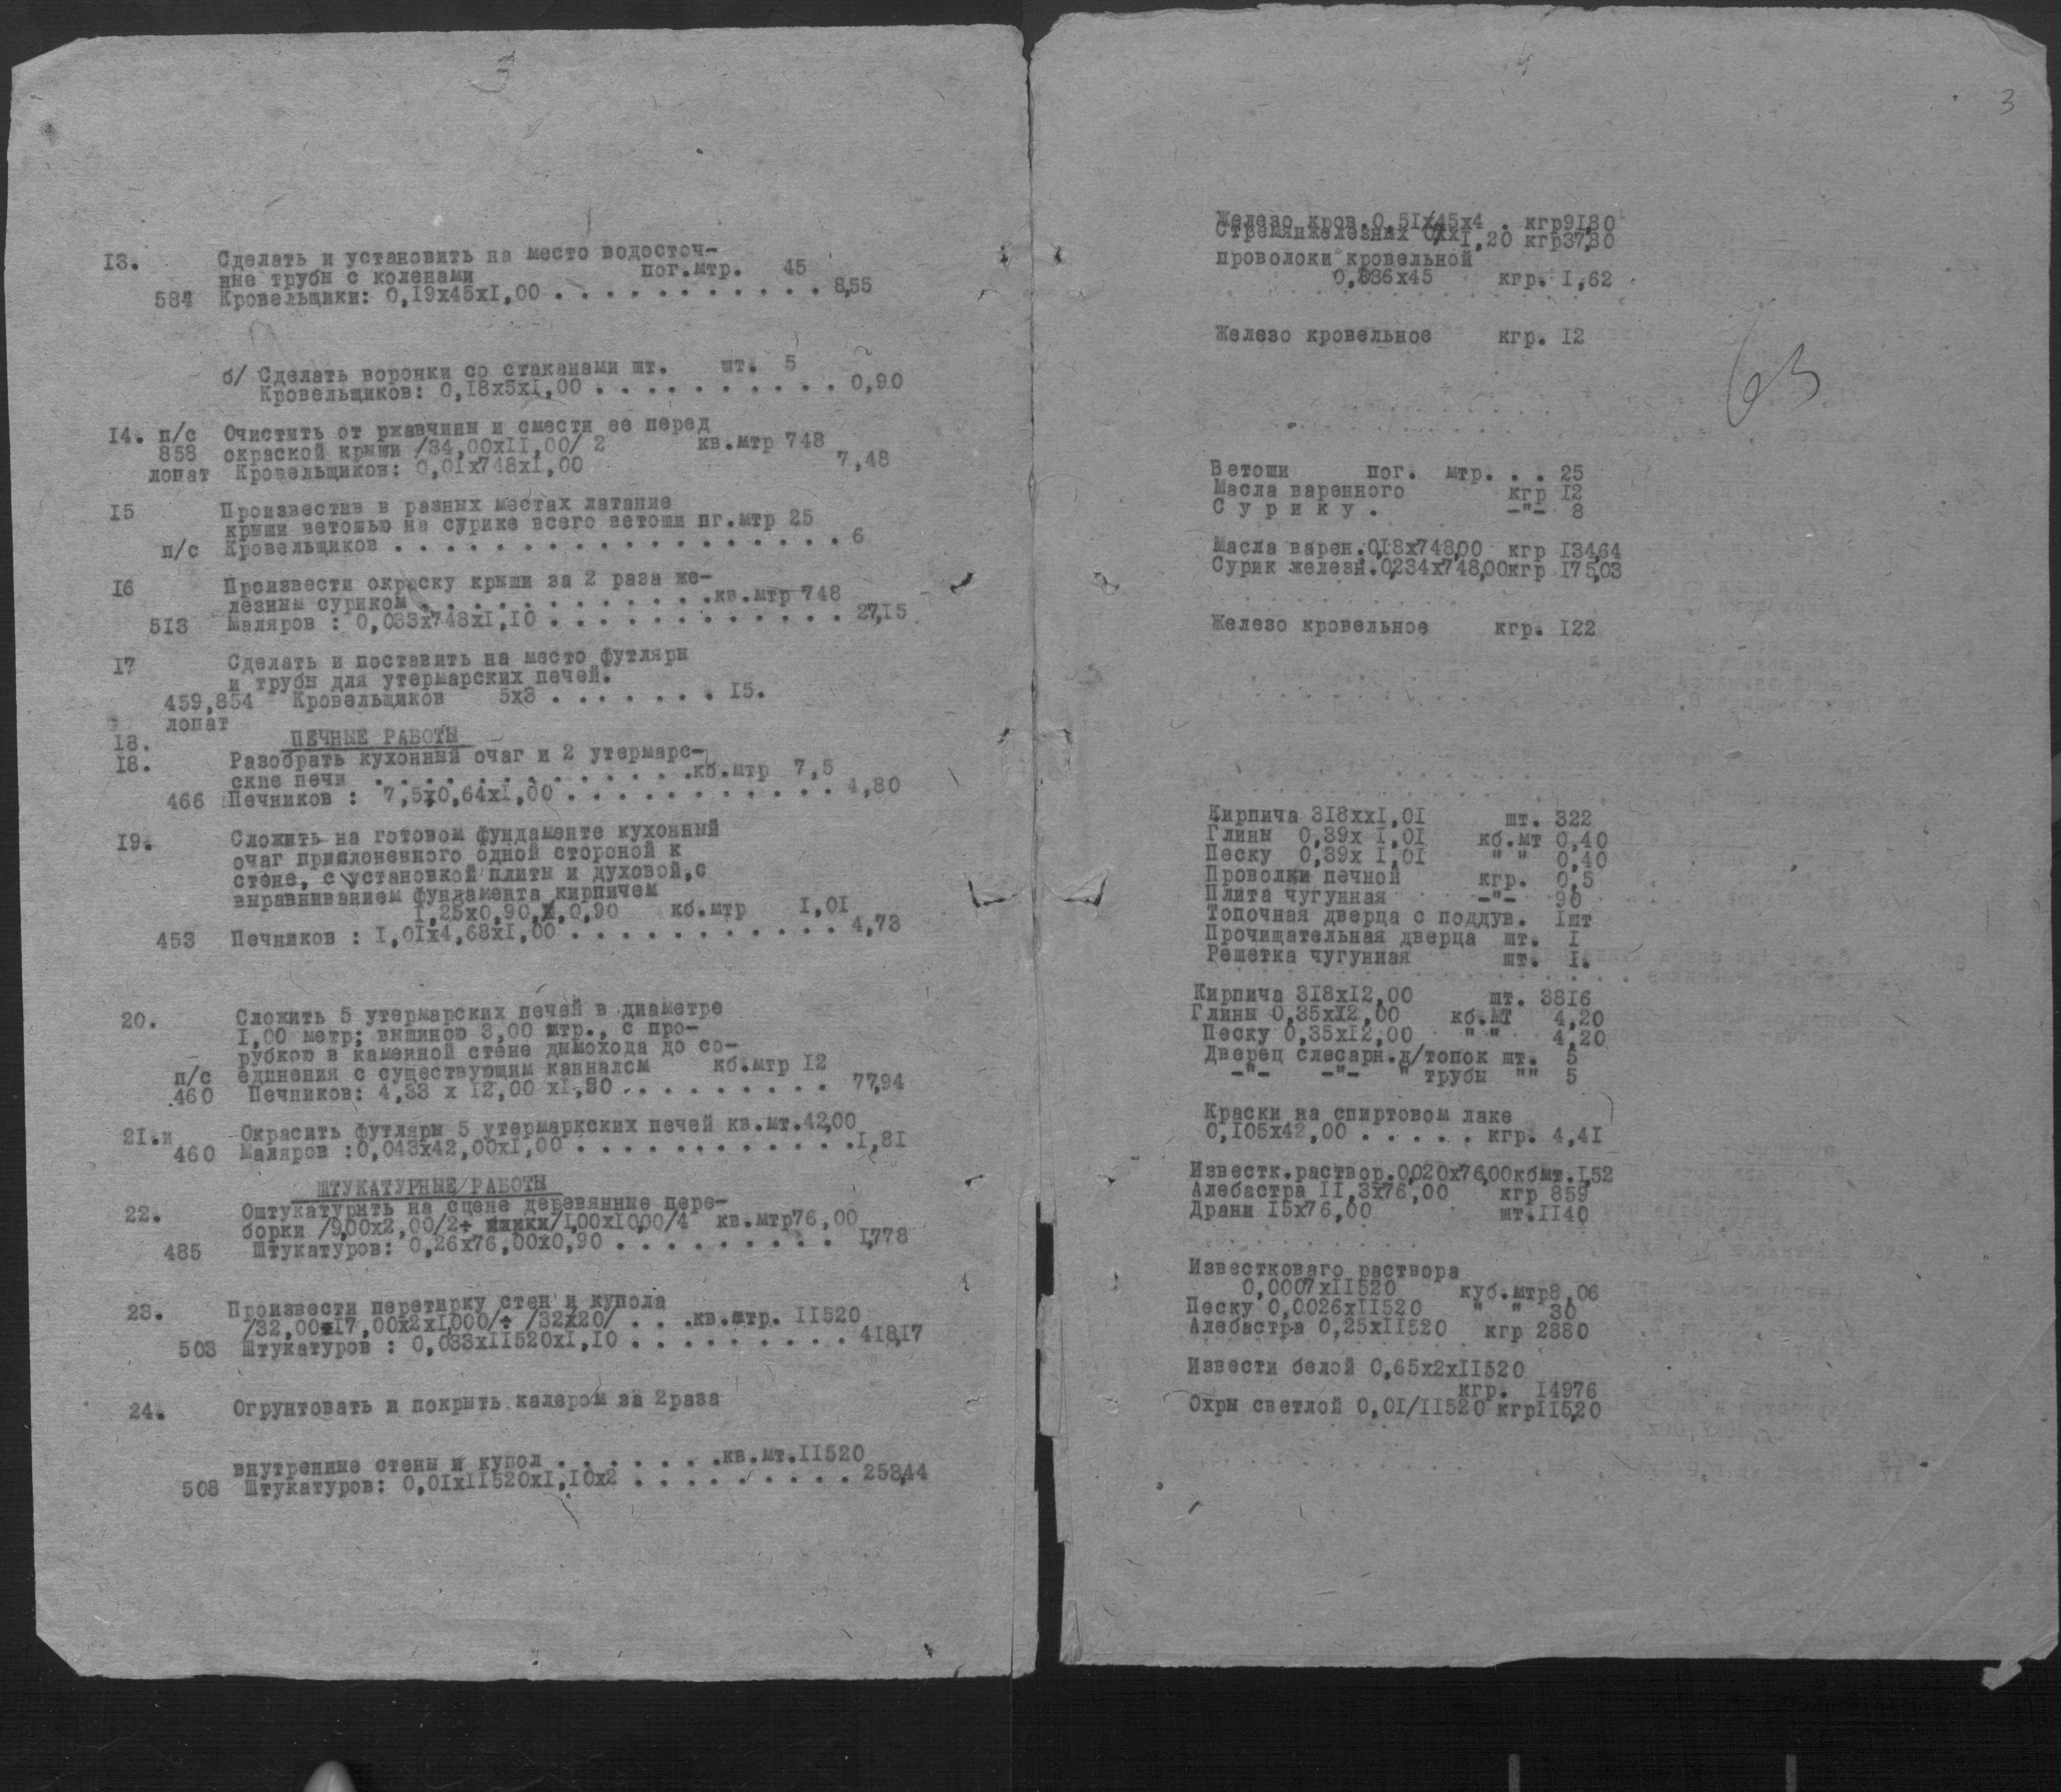 13. Сделать и установить на место водосточ-
ные трубы с коленами пог.мтр. 45
584 Кровельщики: 0,19х45х1,00 . . . . . . . . . . . 8,55
б/ Сделать воронки со стаканами шт. шт. 5
Кровельщиков: 0,18х5х1,00 . . . . . . . . . . 0,90
14. п/с Очистить от ржавчины и смести ее перед
858 окраской крыши /34,00х11,00/ 2 кв.мтр 748
лопат Кровельщиков: 0,01х748х1,00 7,48
15 Произвестив в разных местах латание
крыши ветошью на сурике всего ветоши пг.мтр 25
п/с Кровельщиков . . . . . . . . . . . . . . . . . . 6
16 Произвести окраску крыши за 2 раза же-
лезным суриком . . . . . . . . . . . . .кв.мтр 748
513 Маляров : 0,033х748х1,10 . . . . . . . . . . . . 27,15
17 Сделать и поставить на место футляры
и трубы для утермарских печей.
459,854 Кровельщиков 5х3 . . . . . . . 15.
лопат
18. ПЕЧНЫЕ РАБОТЫ
18. Разобрать кухонный очаг и 2 утермарс-
ские печи . . . . . . . . . . . . .кб.мтр 7,5
466 Печников : 7,5х0,64х1,00 . . . . . . . . . . . 4,80
19. Сложить на готовом фундаменте кухонный
очаг прислоненного одной стороной к
стене, с установкой плиты и духовой,с
выравниванием фундамента кирпичем
1,25х0,90,х,0,90 кб.мтр 1,01
453 Печников : 1,01х4,68х1,00 . . . . . . . . . . . 4,73
20. Сложить 5 утермарских печей в диаметре
1,00 метр; вышиною 3,00 мтр., с про-
рубкою в каменной стене дымохода до со-
п/с единения с существующим канналом кб.мтр 12
460 Печников: 4,33 х 12,00 х1,50 . . . . . . . . . 77,94
21.и Окрасить футляры 5 утермаркских печей кв.мт.42,00
460 Маляров :0,043х42,00х1,00 . . . . . . . . . . . .1,81
ШТУКАТУРНЫЕ РАБОТЫ
22. Оштукатурить на сцене деревянные пере-
борки /9,00х2,00/2+ /1,00х10,00/4 кв.мтр76,00
485 Штукатуров: 0,26х76,00х0,90 . . . . . . . . . 17,78
23. Произвести перетирку стен и купола
/32,00+17,00х2х10,00/+ /32х20/ . . .кв.мтр. 11520
503 Штукатуров : 0,033х11520х1,10 . . . . . . . . . 418,17
24. Огрунтовать и покрыть калером за 2раза
внутренние стены и купол . . . . . . .кв.мт.11520
508 Штукатуров: 0,01х11520х1,10х2 . . . . . . . . . 253,44
3
Железо кров.0,51/45х4 . кгр91,80
1,20 кгр37,80
проволоки кровельной
0,036х45 кгр. 1,62
Железо кровельное кгр. 12
63
Ветоши пог. мтр. . . 25
Масла варенного кгр 12
С у р и к у . -"- 8
Масла варен.0,18х748,00 кгр 134,64
Сурик железн.0,234х748,00кгр 175,03
Железо кровельное кгр. 122
Кирпича 318хх1,01 шт. 322
Глины 0,39х 1,01 кб.мт 0,40
Песку 0,39х 1,01 " " 0,40
Проволки печной кгр. 0,5
Плита чугунная -"- 90
Топочная дверца с поддув. 1шт
Прочищательная дверца шт. 1
Решетка чугунная шт. 1.
Кирпича 318х12,00 шт. 3816
Глины 0,35х12,00 кб.мт 4,20
Песку 0,35х12,00 " " 4,20
Дверец слесарн.д/топок шт. 5
-"- -"- " трубы "" 5
Краски на спиртовом лаке
0,105х42,00 . . . . . кгр. 4,41
Известк.раствор.0,020х76,00кбмт.1,52
Алебастра 11,3х76,00 кгр 859
Драни 15х76,00 шт.1140
Известковаго раствора
0,0007х11520 куб.мтр8,06
Песку 0,0026х11520 " " 30
Алебастра 0,25х11520 кгр 2880
Извести белой 0,65х2х11520
кгр. 14976
Охры светлой 0,01/11520 кгр115,20